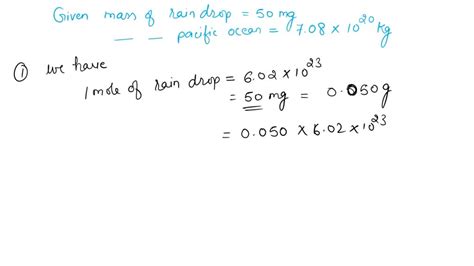 Given mass of rain drop = 50 mg
— — pacific ocean = 7.08 × 10²⁰ kg
① we have
1 mole of rain drop = 6.02 × 10²³
= 50 mg = 0.050g
= 0.050 × 6.02 × 10²³